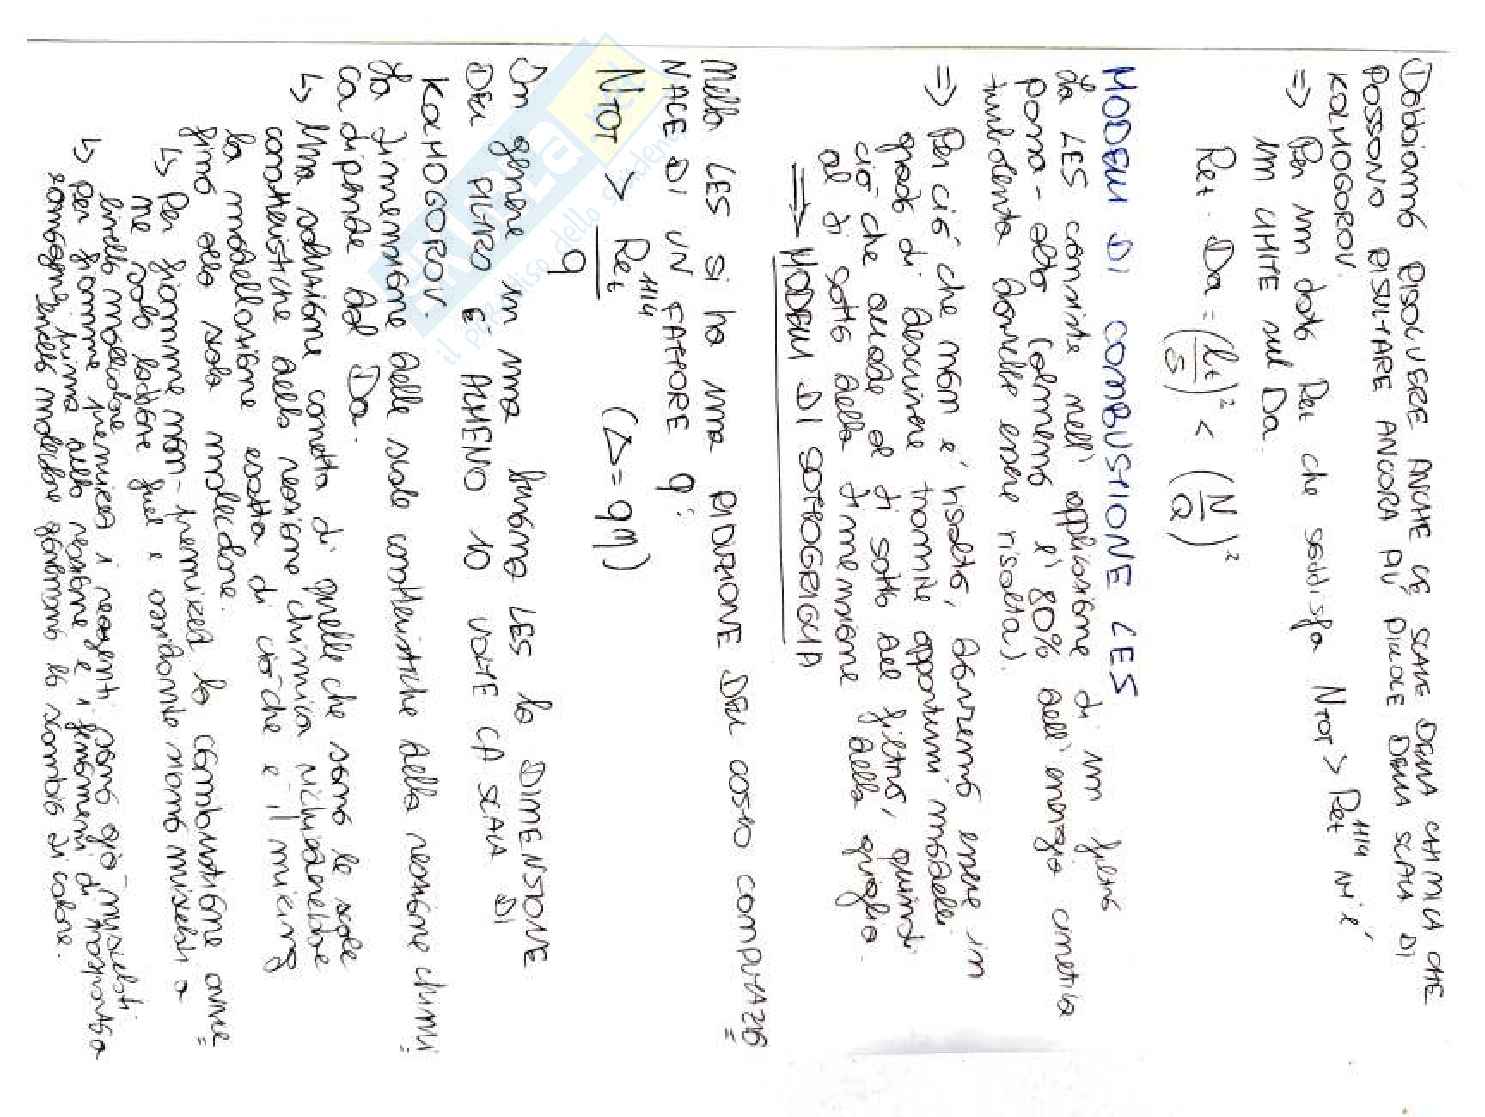 Dobbiamo RISOLVERE ANCHE LE SCALE DELLA CHIMICA CHE
POSSONO RISULTARE ANCORA PIÙ PICCOLE DELLA SCALA DI
KOLMOGOROV.
=> Per un dato Ret che soddisfa NTOT > Ret^11/4 vi è
un LIMITE sul Da:
Ret · Da = (lt/δ)² < (N/Q)²
MODELLI DI COMBUSTIONE LES
La LES consiste nell'applicazione di un filtro
passa-alto (almeno l'80% dell'energia cinetica
turbolenta dovrebbe essere risolta).
=> Per ciò che non è risolto, dovremo essere in
grado di descrivere tramite opportuni modelli
ciò che accade al di sotto del filtro, quindi
al di sotto della dimensione della griglia.
=> MODELLI DI SOTTOGRIGLIA
Nella LES si ha una RIDUZIONE DEL COSTO COMPUTAZIO=
NALE DI UN FATTORE q:
NTOT > Ret^11/4 / q (Δ = qη)
In genere in una buona LES la DIMENSIONE
DEL FILTRO È ALMENO 10 VOLTE LA SCALA DI
KOLMOGOROV.
La dimensione delle scale caratteristiche della reazione chimi=
ca dipende dal Da.
↳ Una soluzione corretta di quelle che sono le scale
caratteristiche della reazione chimica richiederebbe
la modellazione esatta di ciò che è il mixing
fino alla scala molecolare.
↳ Per fiamme non-premixed la combustione avvie=
ne solo laddove fuel e ossidante siano miscelati a
livello molecolare
↳ Per fiamme premixed i reagenti sono già miscelati
prima della reazione e i fenomeni di trasporto a
livello molecolare governano lo scambio di calore.
il paradiso dello studente